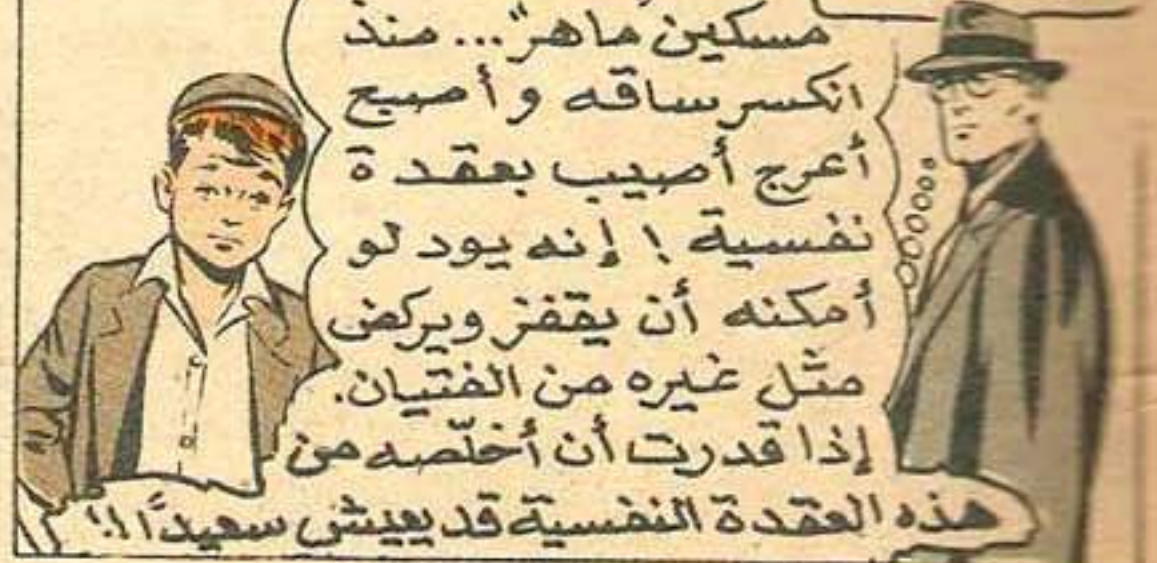 مسكين ماهر"... منذ
انكسر ساقه وأصبح
أعرج أصيب بعقدة
نفسية ! إنه يود لو
أمكنه أن يقفز ويركض
مثل غيره من الفتيان.
إذا قدرت أن أخلّصه من
هذه العقدة النفسية قد يعيش سعيدًا!!"